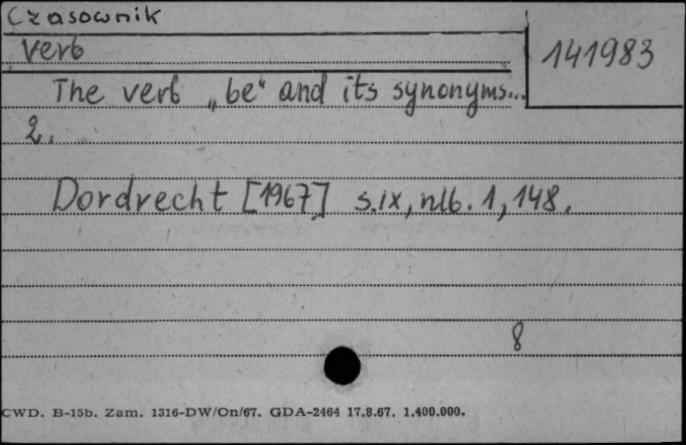 Czasownik
verb
141983
The verb „be" and its synonyms...
2.
Dordrecht [1967] s.ix, nlb. 1, 148.
8
CWD. B-15b. Zam. 1316-DW/On/67. GDA-2464 17.8.67. 1.400.000.